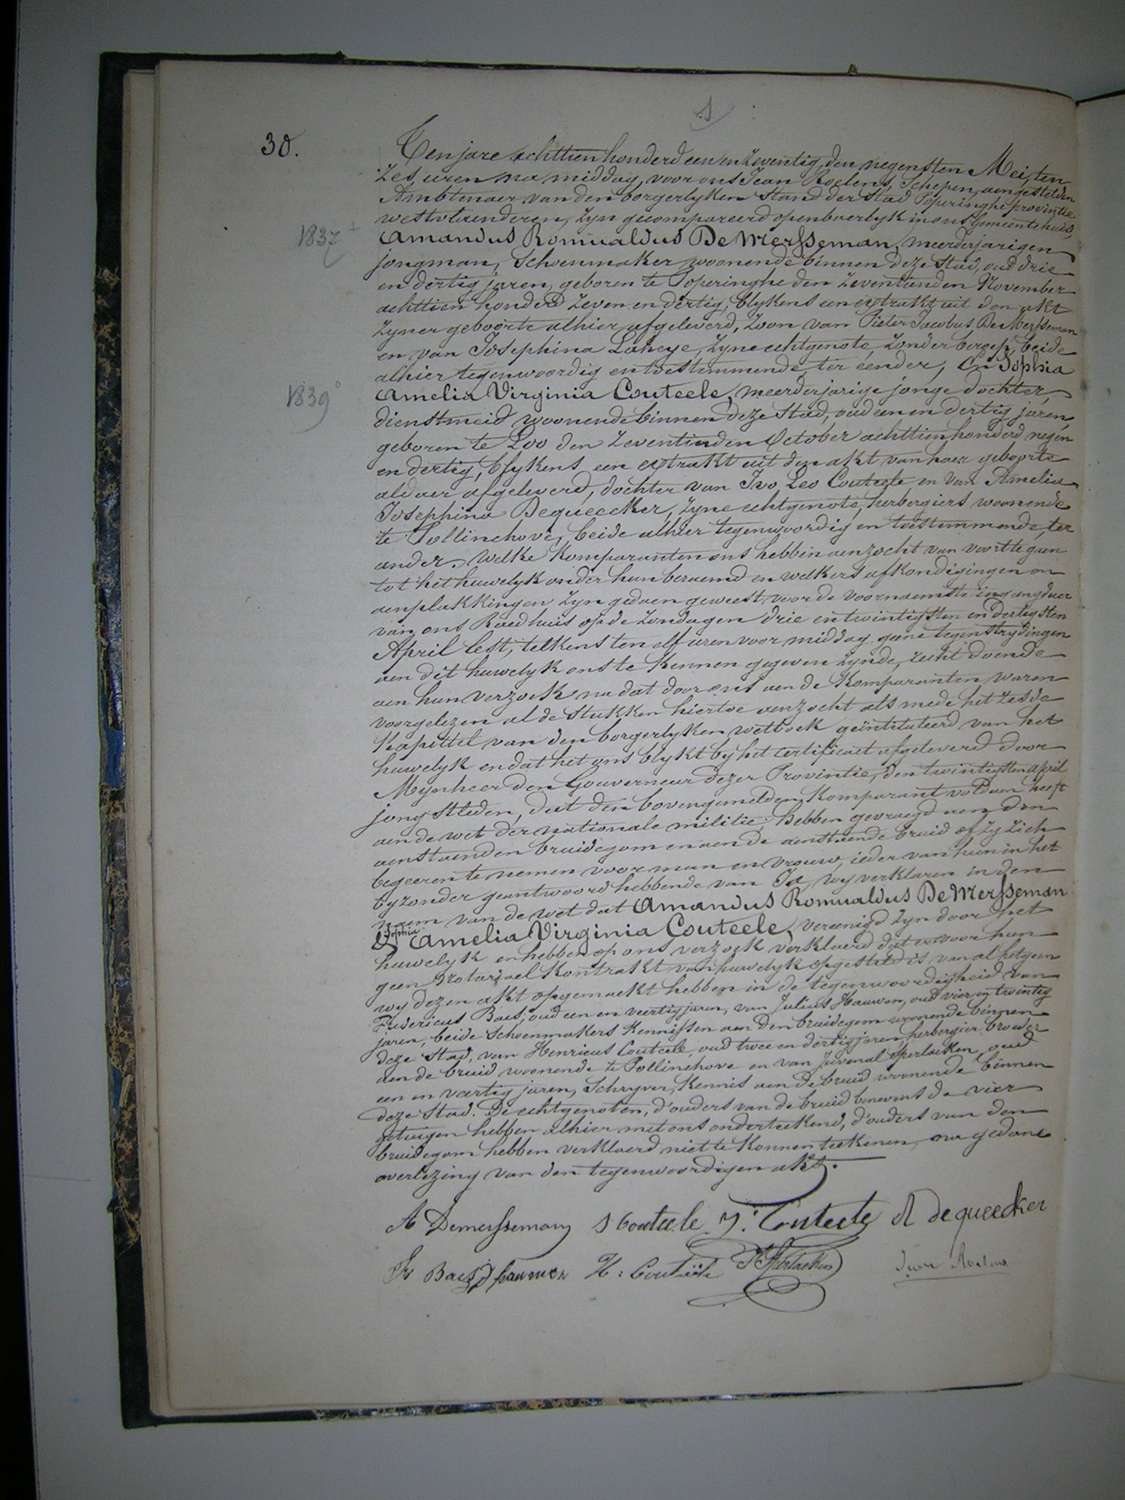 30.
Ten jare achttien honderd een en zeventig, den negensten Mei, ten
zes uren na middag, voor ons Jean Roelens, Schepen, aengestelden
Ambtenaer van den borgerlyken Stand der Stad Poperinghe provintie
westvlaenderen, zyn gecompareerd openbaerlyk in ons Gemeentehuis,
1837
Amandus Romualdus DeMersseman, meerderjarigen
jongman, Schoenmaker, woonende binnen deze Stad, oud drie
en dertig jaren, geboren te Poperinghe den zeventienden November
achttien honderd zeven en dertig, blykens een extrakt uit den akt
zyner geboorte alhier afgeleverd, zoon van Pieter Jacobus DeMersseman
en van Josephina Laheye, zyne echtgenote, zonder beroep, beide
alhier tegenwoordig en toestemmende, ter eender; En Sophia
1839
Amelia Virginia Couteele, meerderjarige jonge dochter,
dienstmeid woonende binnen deze Stad, oud een en dertig jaren,
geboren te Loo den zeventienden October achttien honderd negen
en dertig, blykens een extrakt uit den akt van haer geboorte
aldaer afgeleverd, dochter van Ivo Leo Couteele en van Amelia
Josephina Dequeecker, zyne echtgenote, herbergiers woonende
te Pollinchove, beide alhier tegenwoordig en toestemmende, ter
ander. welke Komparanten ons hebben aenzocht van voort te gaen
tot het huwelyk onder hun beraemd en welkers afkondigingen en
aenplakkingen zyn gedaen geweest voor de voornaemste ingangdeur
van ons Raedhuis op de zondagen drie en twintigsten en dertigsten
April lest, telkens ten elf uren voor middag geene tegenstrydingen
aen dit huwelyk ons te kennen gegeven zynde, recht doende
aen hun verzoek na dat door ons aen de Komparanten waren
voorgelezen al de Stukken hiertoe verzocht als mede het zesde
Kapittel van den borgerlyken wetboek geïntituleerd van het
huwelyk en dat het ons blykt by het certificaet afgeleverd door
Mynheer den Gouverneur dezer Provintie, den twintigsten april
jongstleden, dat den bovengemelden Komparant voldaen heeft
aen de wet der nationale militie; Hebben gevraegd aen den
aenstaenden bruidegom en aen de aenstaende bruid of zy zich
begeeren te nemen voor man en vrouw, ieder van hun in het
byzonder geantwoord hebbende van Ja, wy verklaren in den
naem van de wet dat Amandus Romualdus DeMersseman
& Sophia Amelia Virginia Couteele, vereenigd zyn door het
huwelyk en hebben op ons verzoek verklaerd dat er voor hun
geen Notariael kontrakt van huwelyk opgesteld is, van al hetgeen
wy dezen akt opgemaekt hebben in de tegenwoordigheid van
Fidericus Baes, oud een en veertig jaren, van Julius Hauwen, oud vier en twintig
jaren, beide Schoenmakers Kennissen aen den bruidegom woonende binnen
deze Stad, van Henricus Couteele, oud twee en dertig jaren, herbergier broeder
aen de bruid woonende te Pollinchove en van Juvenal Sperlaeken, oud
een en veertig jaren, Schryver, Kennis aen de bruid woonende binnen
deze Stad. De echtgenoten, d'ouders van de bruid benevens de vier
getuigen hebben alhier met ons onderteekend, d'ouders van den
bruidegom hebben verklaerd niet te konnen teekenen, na gedane
overlezing van den tegenwoordigen akt.
A Demersseman S Couteele Y: Couteele A dequeecker
Fr Baes J hauwen H: Couteele Jean Roelens